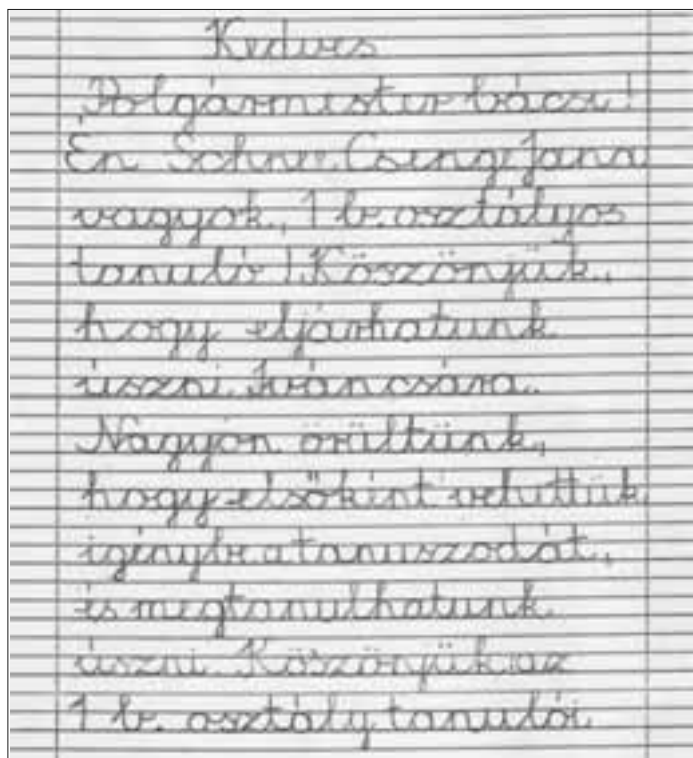 Kedves
Polgármester bácsi!
Én Schnee Csenge Jana
vagyok, 1 b. osztályos
tanuló! Köszönjük,
hogy eljárhatunk
úszni Iváncsára.
Nagyon örültünk,
hogy elsőként vehettük
igénybe a tanuszodát,
és megtanulhatunk
úszni. Köszönjük az
1 b. osztály tanulói